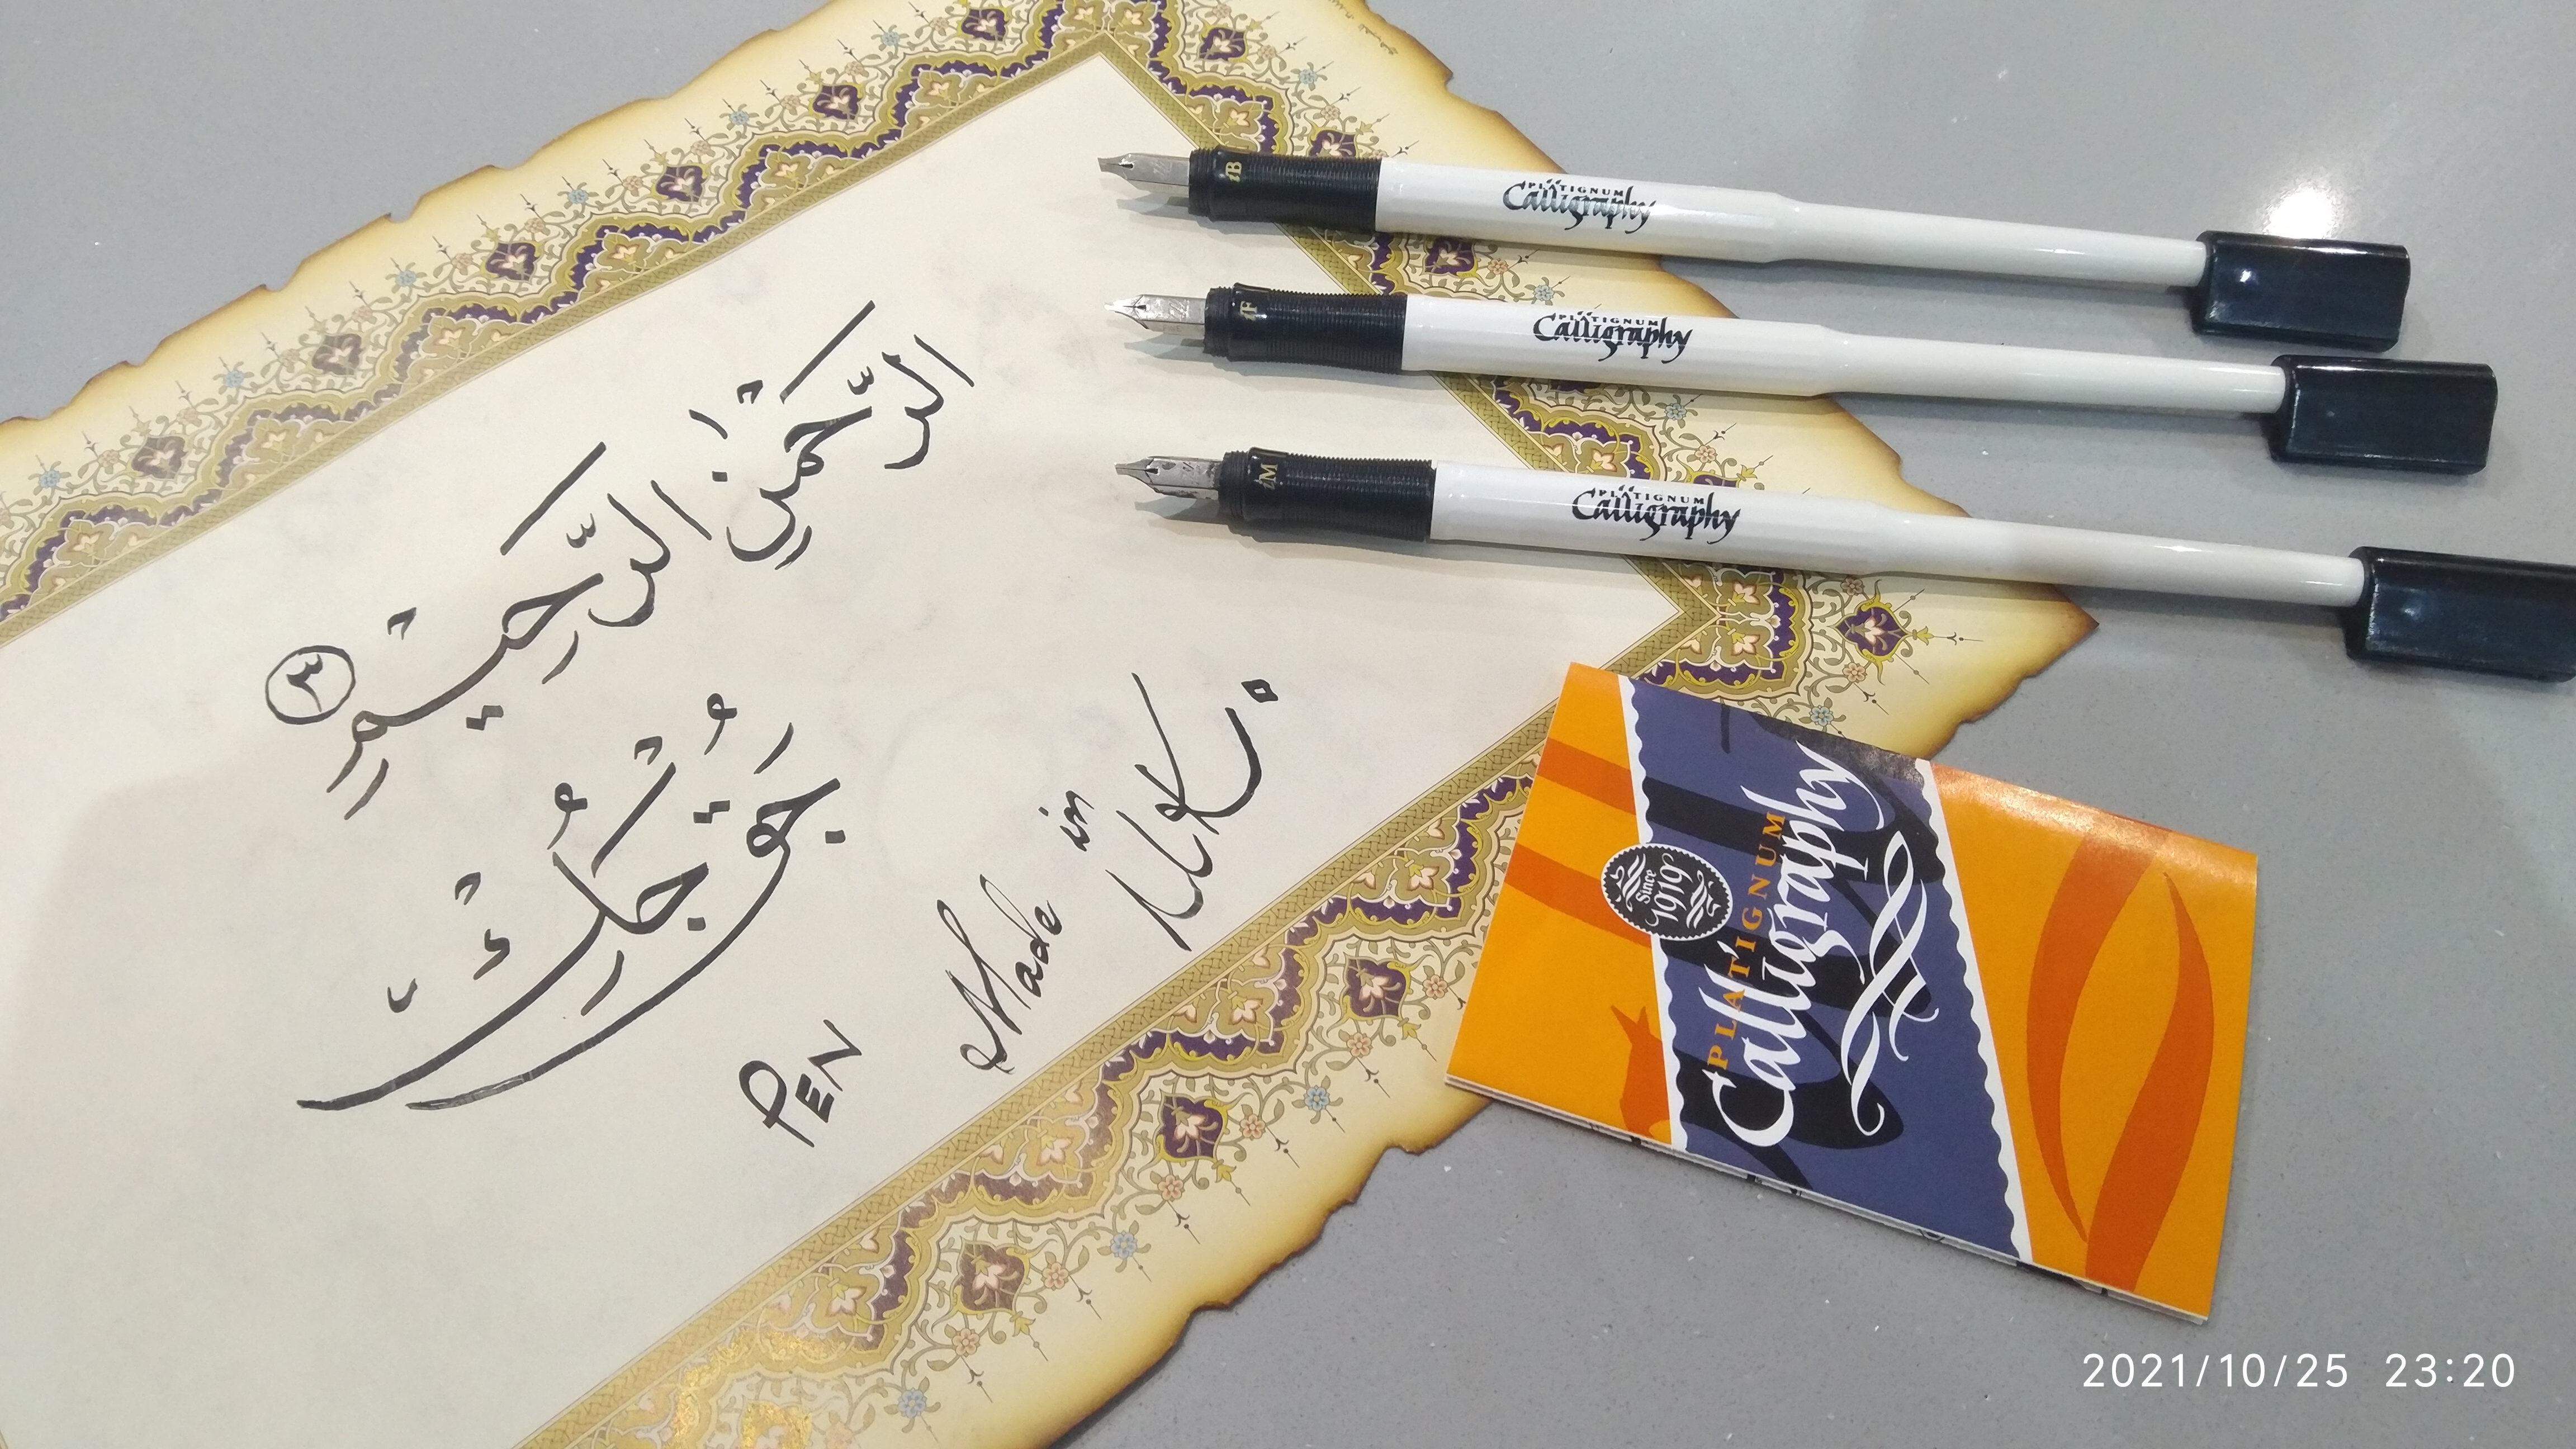 الرَّحْمٰنِ الرَّحِيْمِ ٣
PEN
Made in U.K.
iB PLATIGNUM
Calligraphy
iF PLATIGNUM
Calligraphy
iM PLATIGNUM
Calligraphy
Since
1919
PLATIGNUM
Calligraphy
2021/10/25 23:20